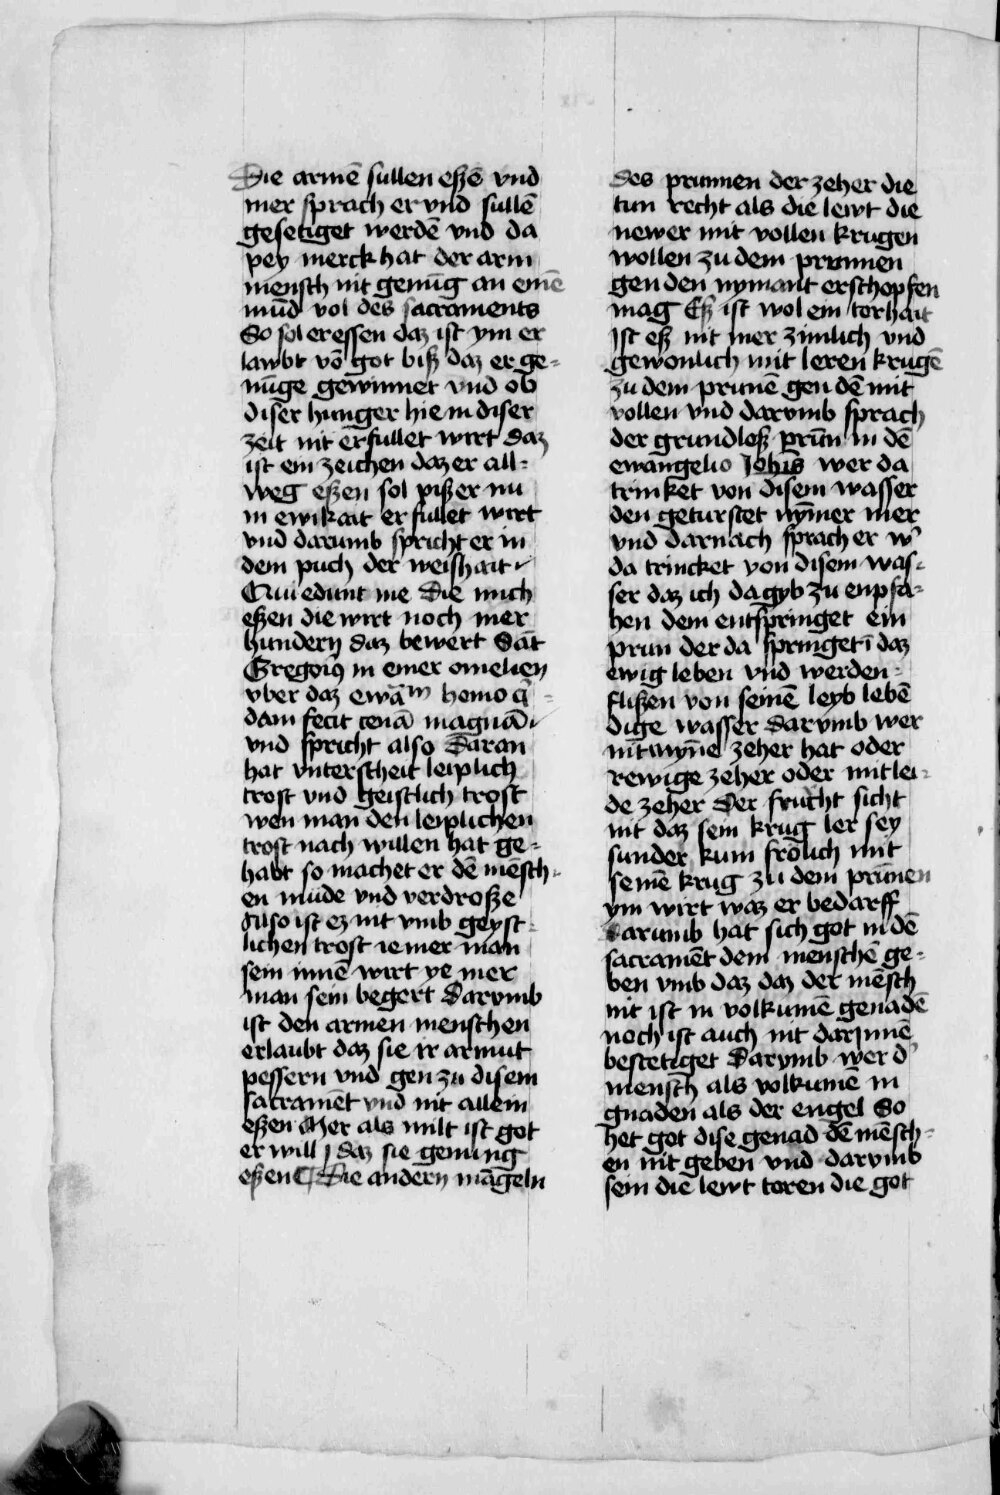 Die armē sullen eßē vnd
mer sprach er vnd sullē
gesetiget werdē vnd da
pey merck hat der arm
mensch nit genūg an einē
mūd vol des sacraments
So sol er essen daz ist ym er
lawbt vō got biß daz er ge-
nūge gewinnet vnd ob
diser hunger hie in diser
zeit nit erfullet wirt daz
ist ein zeichen daz er all-
weg eßen sol pißer nu
in ewikait erfullet wirt
vnd darumb spricht er in
dem puch der weishait
Qui edunt me Die mich
eßen die wirt noch mer
hundern daz bewert Sāt
Gregoriꝰ in einer omelien
vber daz ewāᵐ homo q̄-
dam fecit cenā magnā
vnd spricht also Daran
hat vnterscheit leiplich
trost vnd geistlich trost
wen man den leiplichen
trost nach willen hat ge-
habt so machet er dē mēsch-
en müde vnd verdroße
Also ist ez nit vmb geyst-
lichen trost ie mer man
sein innē wirt ye mer
man sein begert Darvmb
ist den armen menschen
erlaubt daz sie ir armut
pessern vnd gen zu disem
sacramēt vnd nit allein
eßen Mer als milt ist got
er will daz sie genung
eßen ¶ Die andern māgeln
des prunnen der zeher die
tun recht als die lewt die
newer mit vollen krugen
wollen zu dem prunnen
gen den nymant erschopfen
mag Eß ist wol ein torhait
Ist eß nit mer zimlich vnd
gewonlich mit leren krugē
zu dem prunē gen dē mit
vollen vnd darvmb sprach
der grundloß prūn in dē
ewangelio Joh̄is wer da
trinket von disem wasser
den geturstet nȳmer mer
vnd darnach sprach er w'
da trincket von disem was-
ser daz ich da gyb zu enpfa-
hen dem entspringet ein
prun der da springet ī daz
ewig leben vnd werden
flißen von seinē leyb lebē
dige wasser darvmb wer
nit wynē zeher hat oder
rewige zeher oder mitlei-
de zeher Der frucht sicht
nit daz sein krug ler sey
sunder kum frölich mit
seinē krug zu dem prūnen
ym wirt waz er bedarff
Darumb hat sich got in dē
sacramēt dem menschē ge-
ben vmb daz daz der mēsch
nit ist in volkumē genadē
noch ist auch nit darjnnē
bestetiget Darvmb wer d'
mensch als volkumē in
gnaden als der engel So
het got dise genad dē mēsch-
en nit geben vnd darvmb
sein die lewt toren die got